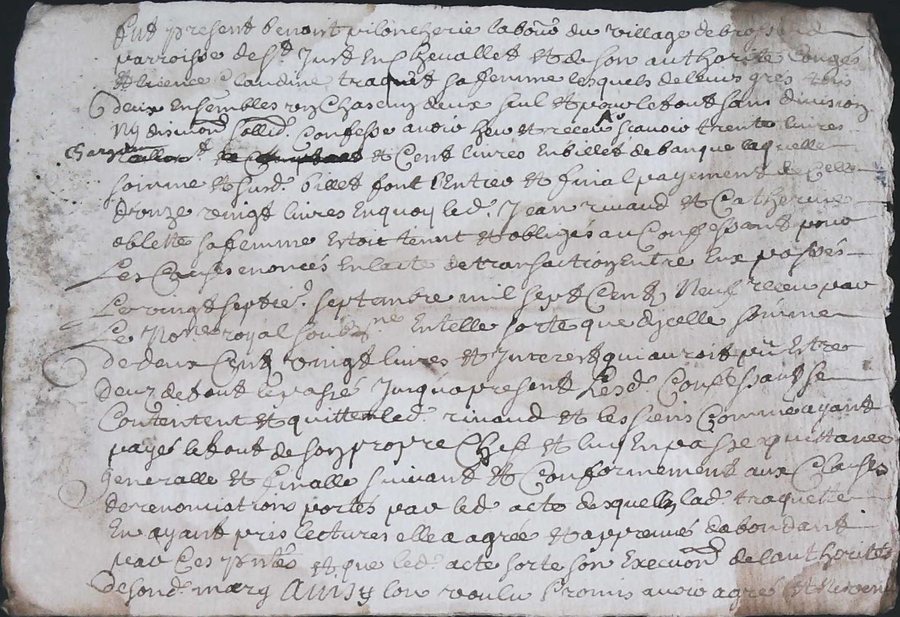 fut present benoit piloncherie labour du village de
parroisse de St Just En Chevallet Et de son authorité Congés
Et licence Claudine traquet sa femme lesquels de leurs gres
deux Ensembles Et Chascung deux seul Et pour le tout sans division
ny discuon Confesse avoir heu et receu Scavoir trente livres
et Cent livres En billet de banque laquelle
somme Et surd. billet font l'Entier Et final payement de Celle
de vingt livres En quoy led. Jean rivaud Et Catherine
oblette sa femme Estoit tenut Et obligés au Confessant pour
Les Causes enoncés En lacte de transaction Entre Eux passés
Le vingt septie. septembre mil sept Cent Neuf receu par
Le Nore royal soubzne En telle sorte que dicelle somme
De deux Cent vingt livres Et Interest qui auroit peu Estre
deuz de tout le passé Jusqua present Lesd. Confessant se
Contentent Et quittent led. rivaud Et les siens Comme ayant
payés le tout de son propre Chef Et luy En passe quittance
generalle Et finalle suivant Et Conformement aux Clauses
de renonciations portés par led. acte desquelle lad. traquette
En ayant pris lectures elle a agrée Et approuvé dabondant
par Ces pntes Et que led. acte sorte son Execuon de lauthorités
de sond. mary Ainsy lon voulu Promis avoir agrée